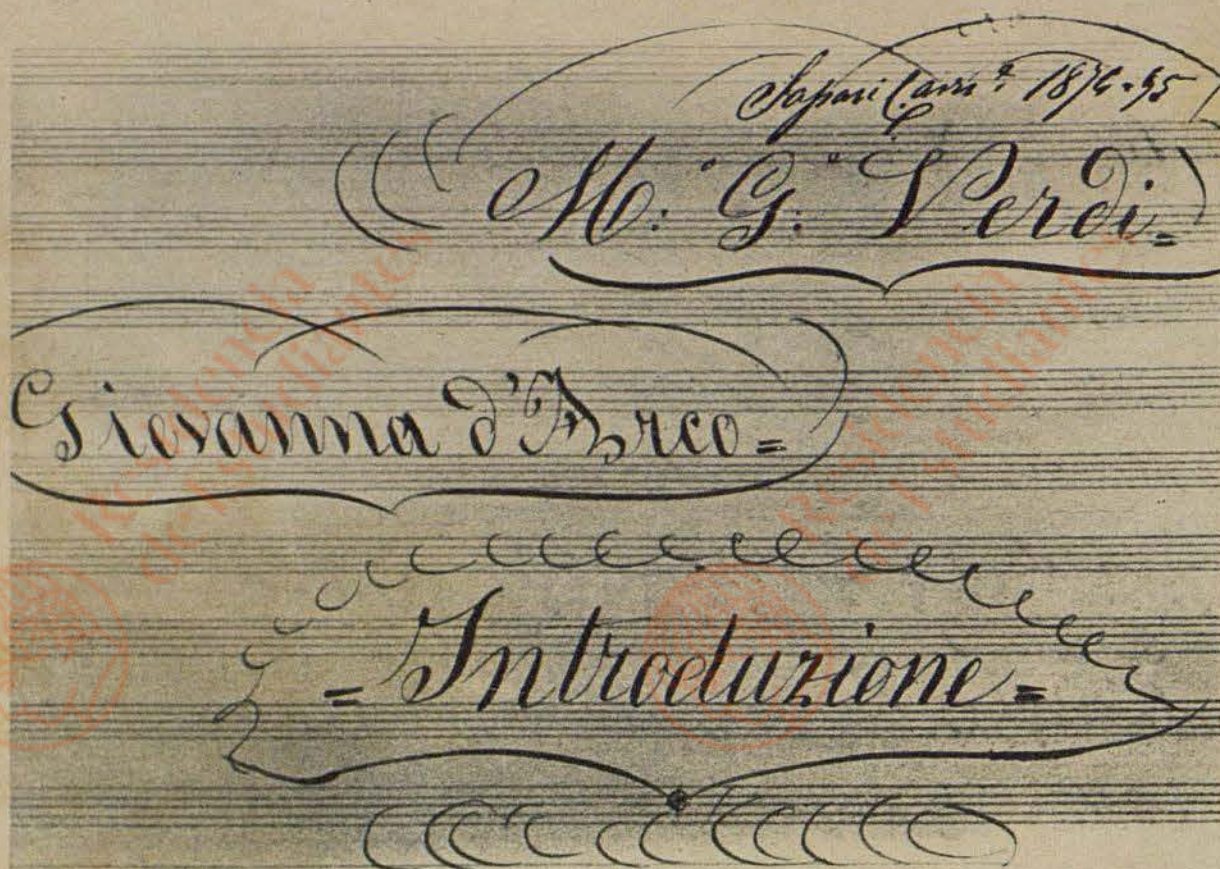 M.° G.° Verdi=
Giovanna d'Arco=
=Introduzione=
Residencia
de Estudiantes
Residencia
de Estudiantes